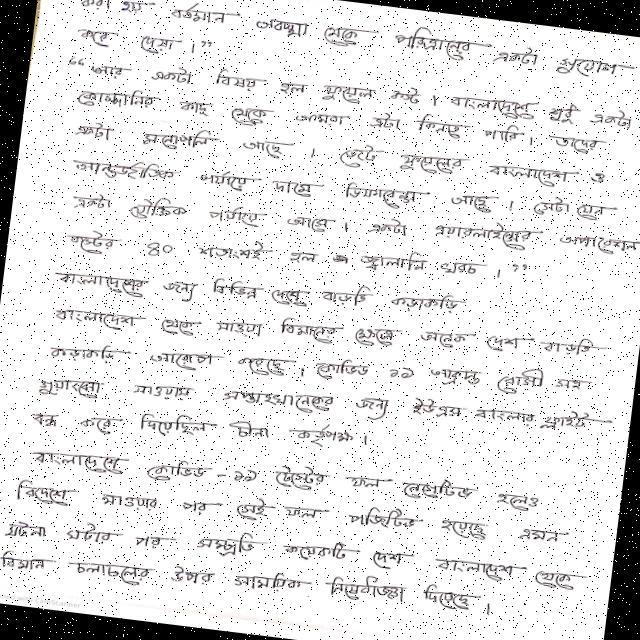 করা হয় বর্তমান অবস্থা থেকে পরিত্রানের একটা সুযোগ
করে দেয়া ।”
“আর একটা বিষয় হল ফুয়েল কস্ট । বাংলাদেশে শুধু একটা
কোম্পানির কাছ থেকে আমরা এটা কিনতে পারি । তাদের
একটা মনোপলি আছে । জেট ফুয়েলের বাংলাদেশ ও
আন্তর্জাতিক পর্যায়ে দামে ডিফারেন্স আছে । সেটা যেন
একটা যৌক্তিক পর্যায়ে আসে । একটা এয়ারলাইন্সের অপারেশন
কস্টের ৪০ শতাংশই হল জ্বালানি খরচ ।”
বাংলাদেশের জন্য বিভিন্ন দেশে বাড়তি কড়াকড়ি
বাংলাদেশ থেকে যাওয়া বিমানের ক্ষেত্রে অনেক দেশ বাড়তি
কড়াকড়ি আরোপ করেছে । কোভিড ১৯ আক্রান্ত রোগী সহ
গুয়াংজো যাওয়ায় সপ্তাহখানেকের জন্য ইউএস বাংলার ফ্লাইট
বন্ধ করে দিয়েছিল চীনা কর্তৃপক্ষ ।
বাংলাদেশে কোভিড - ১৯ টেস্টের ফল নেগেটিভ হলেও
বিদেশে যাওয়ার পর সেই ফল পজিটিভ হয়েছে এমন
ঘটনা ঘটার পর সম্প্রতি কয়েকটি দেশ বাংলাদেশ থেকে
বিমান চলাচলের উপর সাময়িক নিষেধাজ্ঞা দিয়েছে ।